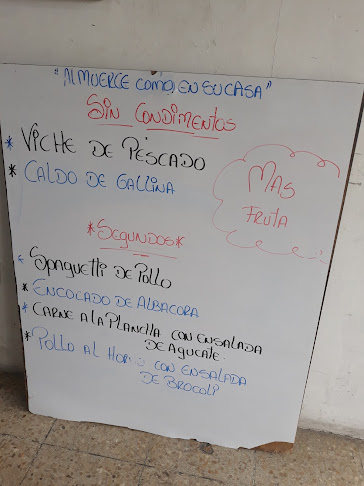 "ALMUERCE COMO, EN SU CASA"
SIN CONDIMENTOS
* VICHE DE PESCADO
* CALDO DE GALLINA
MAS
FRUTA
*SEGUNDOS*
* SPAGUETTI DE POLLO
* ENCOCADO DE ALBACORA
* CARNE A LA PLANCHA CON ENSALADA
DE AGUCATE.
* POLLO AL HORNO CON ENSALADA
DE BROCOLI